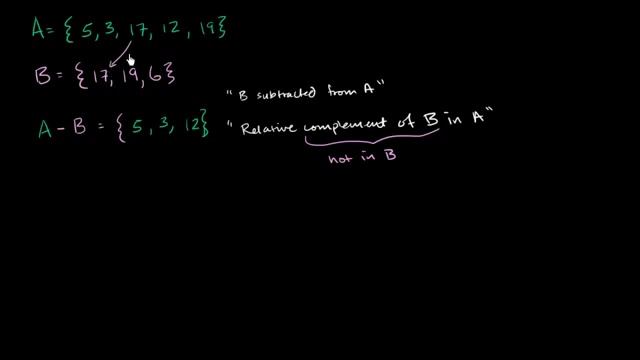 A = { 5, 3, 17, 12, 19}
B = { 17, 19, 6}
"B subtracted from A"
A - B = { 5, 3, 12}
"Relative complement of B in A"
not in B